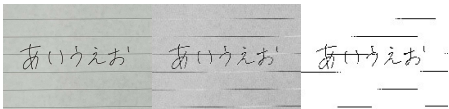 あいうえお あいうえお あいうえお